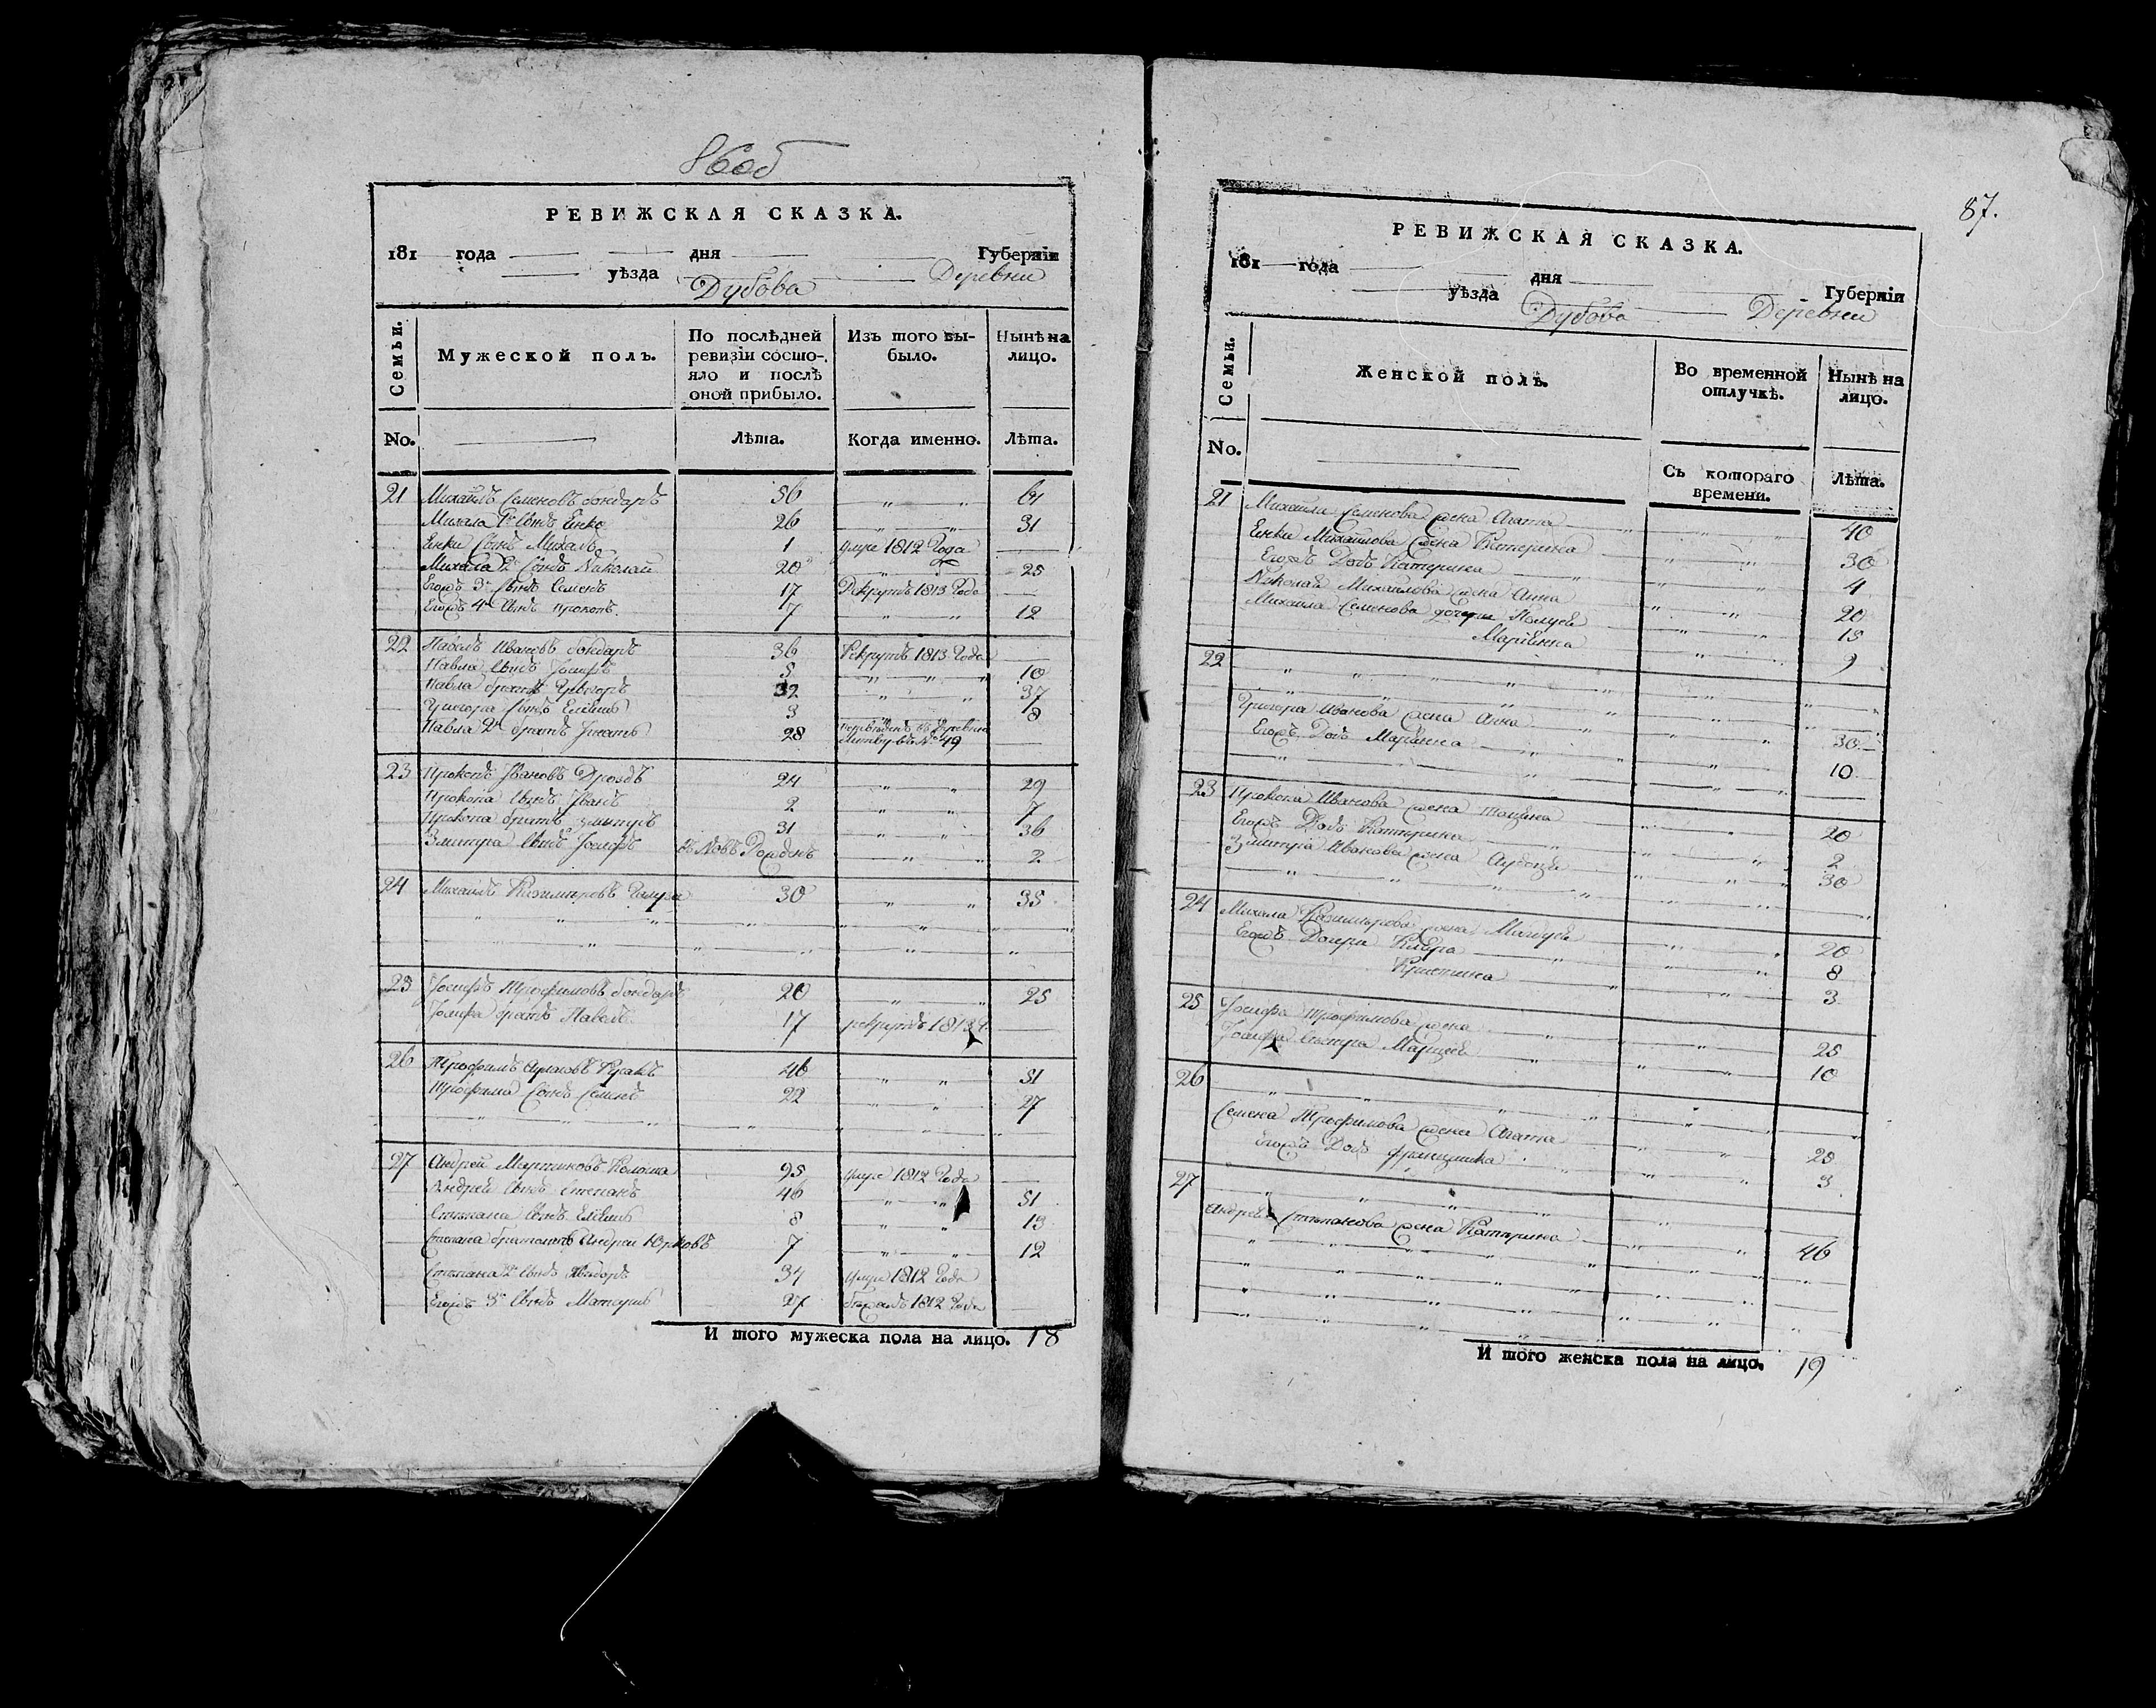 86об
РЕВИЖСКАЯ СКАЗКА.
181 года дня Губернїи
уѣзда Дубова Деревни
Семьи. Мужеской полъ. По послѣдней ревизїи состояло и послѣ оной прибыло. Изъ того выбыло. Нынѣ на лицо.
No. Лѣта. Когда именно. Лѣта.
21 Михайлъ Семеновъ бондарь 56 " " 61
Михала 1й сынъ Енко 26 " " 31
Енки сынъ Михалъ 1 умре 1812 Года
Михала 2й сынъ Николай 20 " " 25
Егожъ 3й сынъ Семенъ 17 Рекрутъ 1813 Года
Егожъ 4й сынъ прокопъ 7 " " 12
22 Павелъ Ивановъ бондарь 36 Рекрутъ 1813 Года
Павла сынъ Іосифъ 5 " " 10
Павла братъ Григоръ 32 " " 37
Григора сынъ 3 8
Павла 2й братъ Игнатъ 28 въ деревню № 49
23 Прокопъ Ивановъ Дроздъ 24 " " 29
Прокопа сынъ Иванъ 2 " " 7
Прокопа братъ змитръ 31 " " 36
Змитра сынъ Іосифъ въ Новъ Рожденъ " " 2
24 Михайлъ Казимировъ 30 " " 35
25 Іосифъ Трофимовъ бондарь 20 " " 25
Іосифа братъ Павелъ 17 рекрутъ 1813
26 Трофимъ 46 " " 51
Трофима сынъ Семенъ 22 " " 27
27 Андрей Мартиновъ 95 умре 1812 Года
Андрей сынъ Степанъ 46 " " 51
Степана сынъ 8 " " 13
Степана Андрей Юрковъ 7 " " 12
Степана 2й сынъ 34 умре 1812 Года
Егожъ 3й сынъ Матеушъ 27 бежалъ 1812 Года
И того мужеска пола на лицо. 18
87.
РЕВИЖСКАЯ СКАЗКА.
181 года дня Губернїи
уѣзда Дубова Деревни
Семьи. Женской полъ. Во временной отлучкѣ. Нынѣ на лицо.
No. Съ котораго времени. Лѣта.
21 Михайла Семенова жена Агата " " 40
Енки Михайлова жена Катерина " " 30
Егожъ Дочь Катерина " " 4
Николая Михайлова жена Анна " " 20
Михайла Семенова дочери " " 15
Марцянна " " 9
22 " " " "
Григора Иванова жена Анна " " 30
Егожъ Дочь Марянна " " 10
23 Прокопа Иванова жена " " 20
Егожъ Дочь Катерина " " 2
Змитра Иванова жена " " 30
24 Михала Казимирова жена " " 20
Егожъ Дочери " " 8
Кристина " " 3
25 Іосифа Трофимова жена " " 25
Іосифа сестра " " 10
26 " " " "
Семена Трофимова жена Агата " " 25
Егожъ Дочь францишка " " 3
27 " " " "
Андрея Степанова жена Катерина " " 46
И того женска пола на лицо. 19